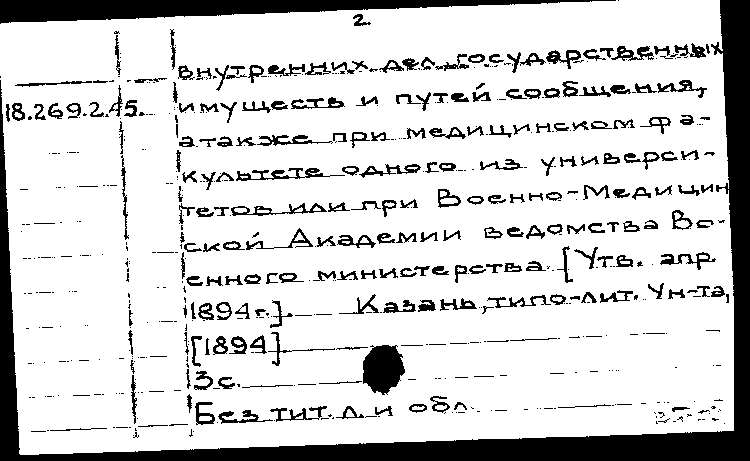 2.
внутренних дел, государственных
18.269.2.45. имуществ и путей сообщения,
а также при медицинском фа-
культете одного из универси-
тетов или при Военно-Медицин
ской Академии ведомства Во-
енного министерства. [Утв. апр.
1894 г.]. Казань, типо-лит. Ун-та,
[1894].
3 с.
Без тит. л. и обл.